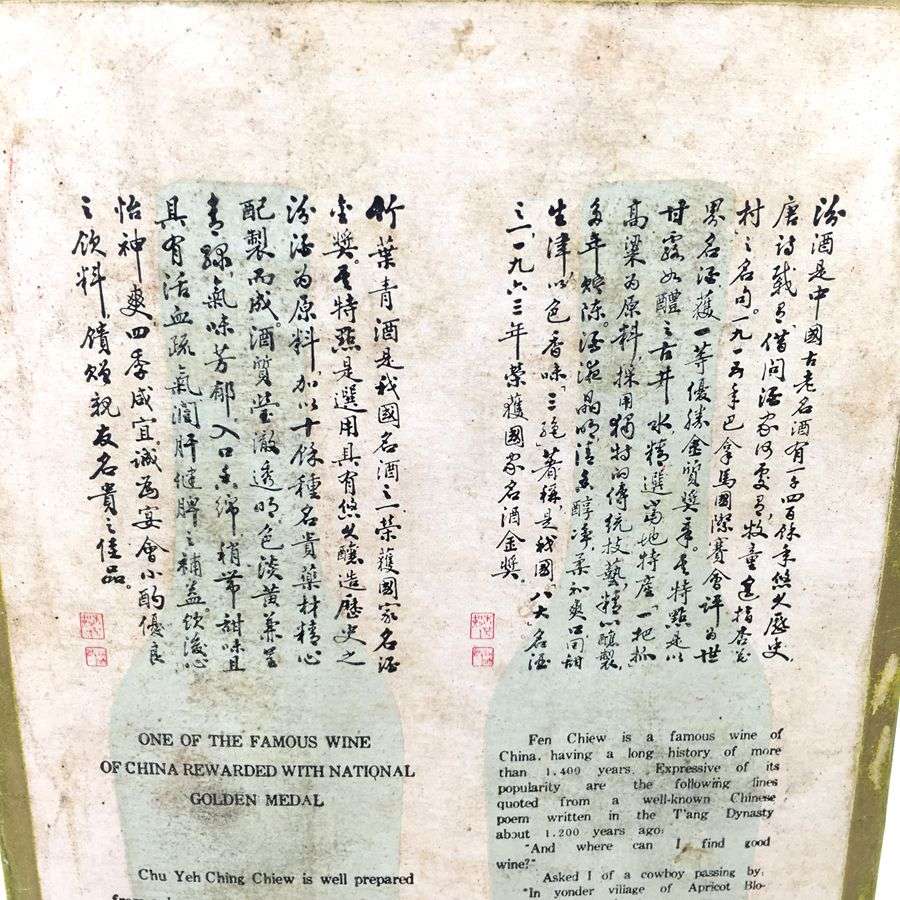 汾酒是中國古老名酒有一千四百餘年悠久歷史
唐詩載有"借問酒家何處有,牧童遙指杏花
村"之名句。一九一五年巴拿馬國際賽會評為世
界名酒獲一等優勝金質獎章。其特點是以
甘露如醴之古井水精選當地特產「一把抓」
高粱為原料,採用獨特的傳統技藝,精心釀製,
多年貯陳。酒液晶明清香醇淨,柔和爽口回甜
生津以色香味「三絕」著稱是我國「八大」名酒
之一,一九六三年榮獲國家名酒金獎。
竹葉青酒是我國名酒之一榮獲國家名酒
金獎。其特點是選用具有悠久釀造歷史之
汾酒為原料加以十餘種名貴藥材精心
配製而成。酒質瑩澈透明色淡黃兼呈
青綠氣味芳郁入口香綿稍帶甜味且
具有活血疏氣潤肝健脾之補益飲後心
怡神爽四季咸宜誠為宴會小酌優良
之飲料饋贈親友名貴之佳品。
ONE OF THE FAMOUS WINE
OF CHINA REWARDED WITH NATIONAL
GOLDEN MEDAL
Chu Yeh Ching Chiew is well prepared
Fen Chiew is a famous wine of
China, having a long history of more
than 1.400 years. Expressive of its
popularity are the following lines
quoted from a well-known Chinese
poem written in the T'ang Dynasty
about 1.200 years ago:
"And where can I find good
wine?"
Asked I of a cowboy passing by;
"In yonder village of Apricot Blo-